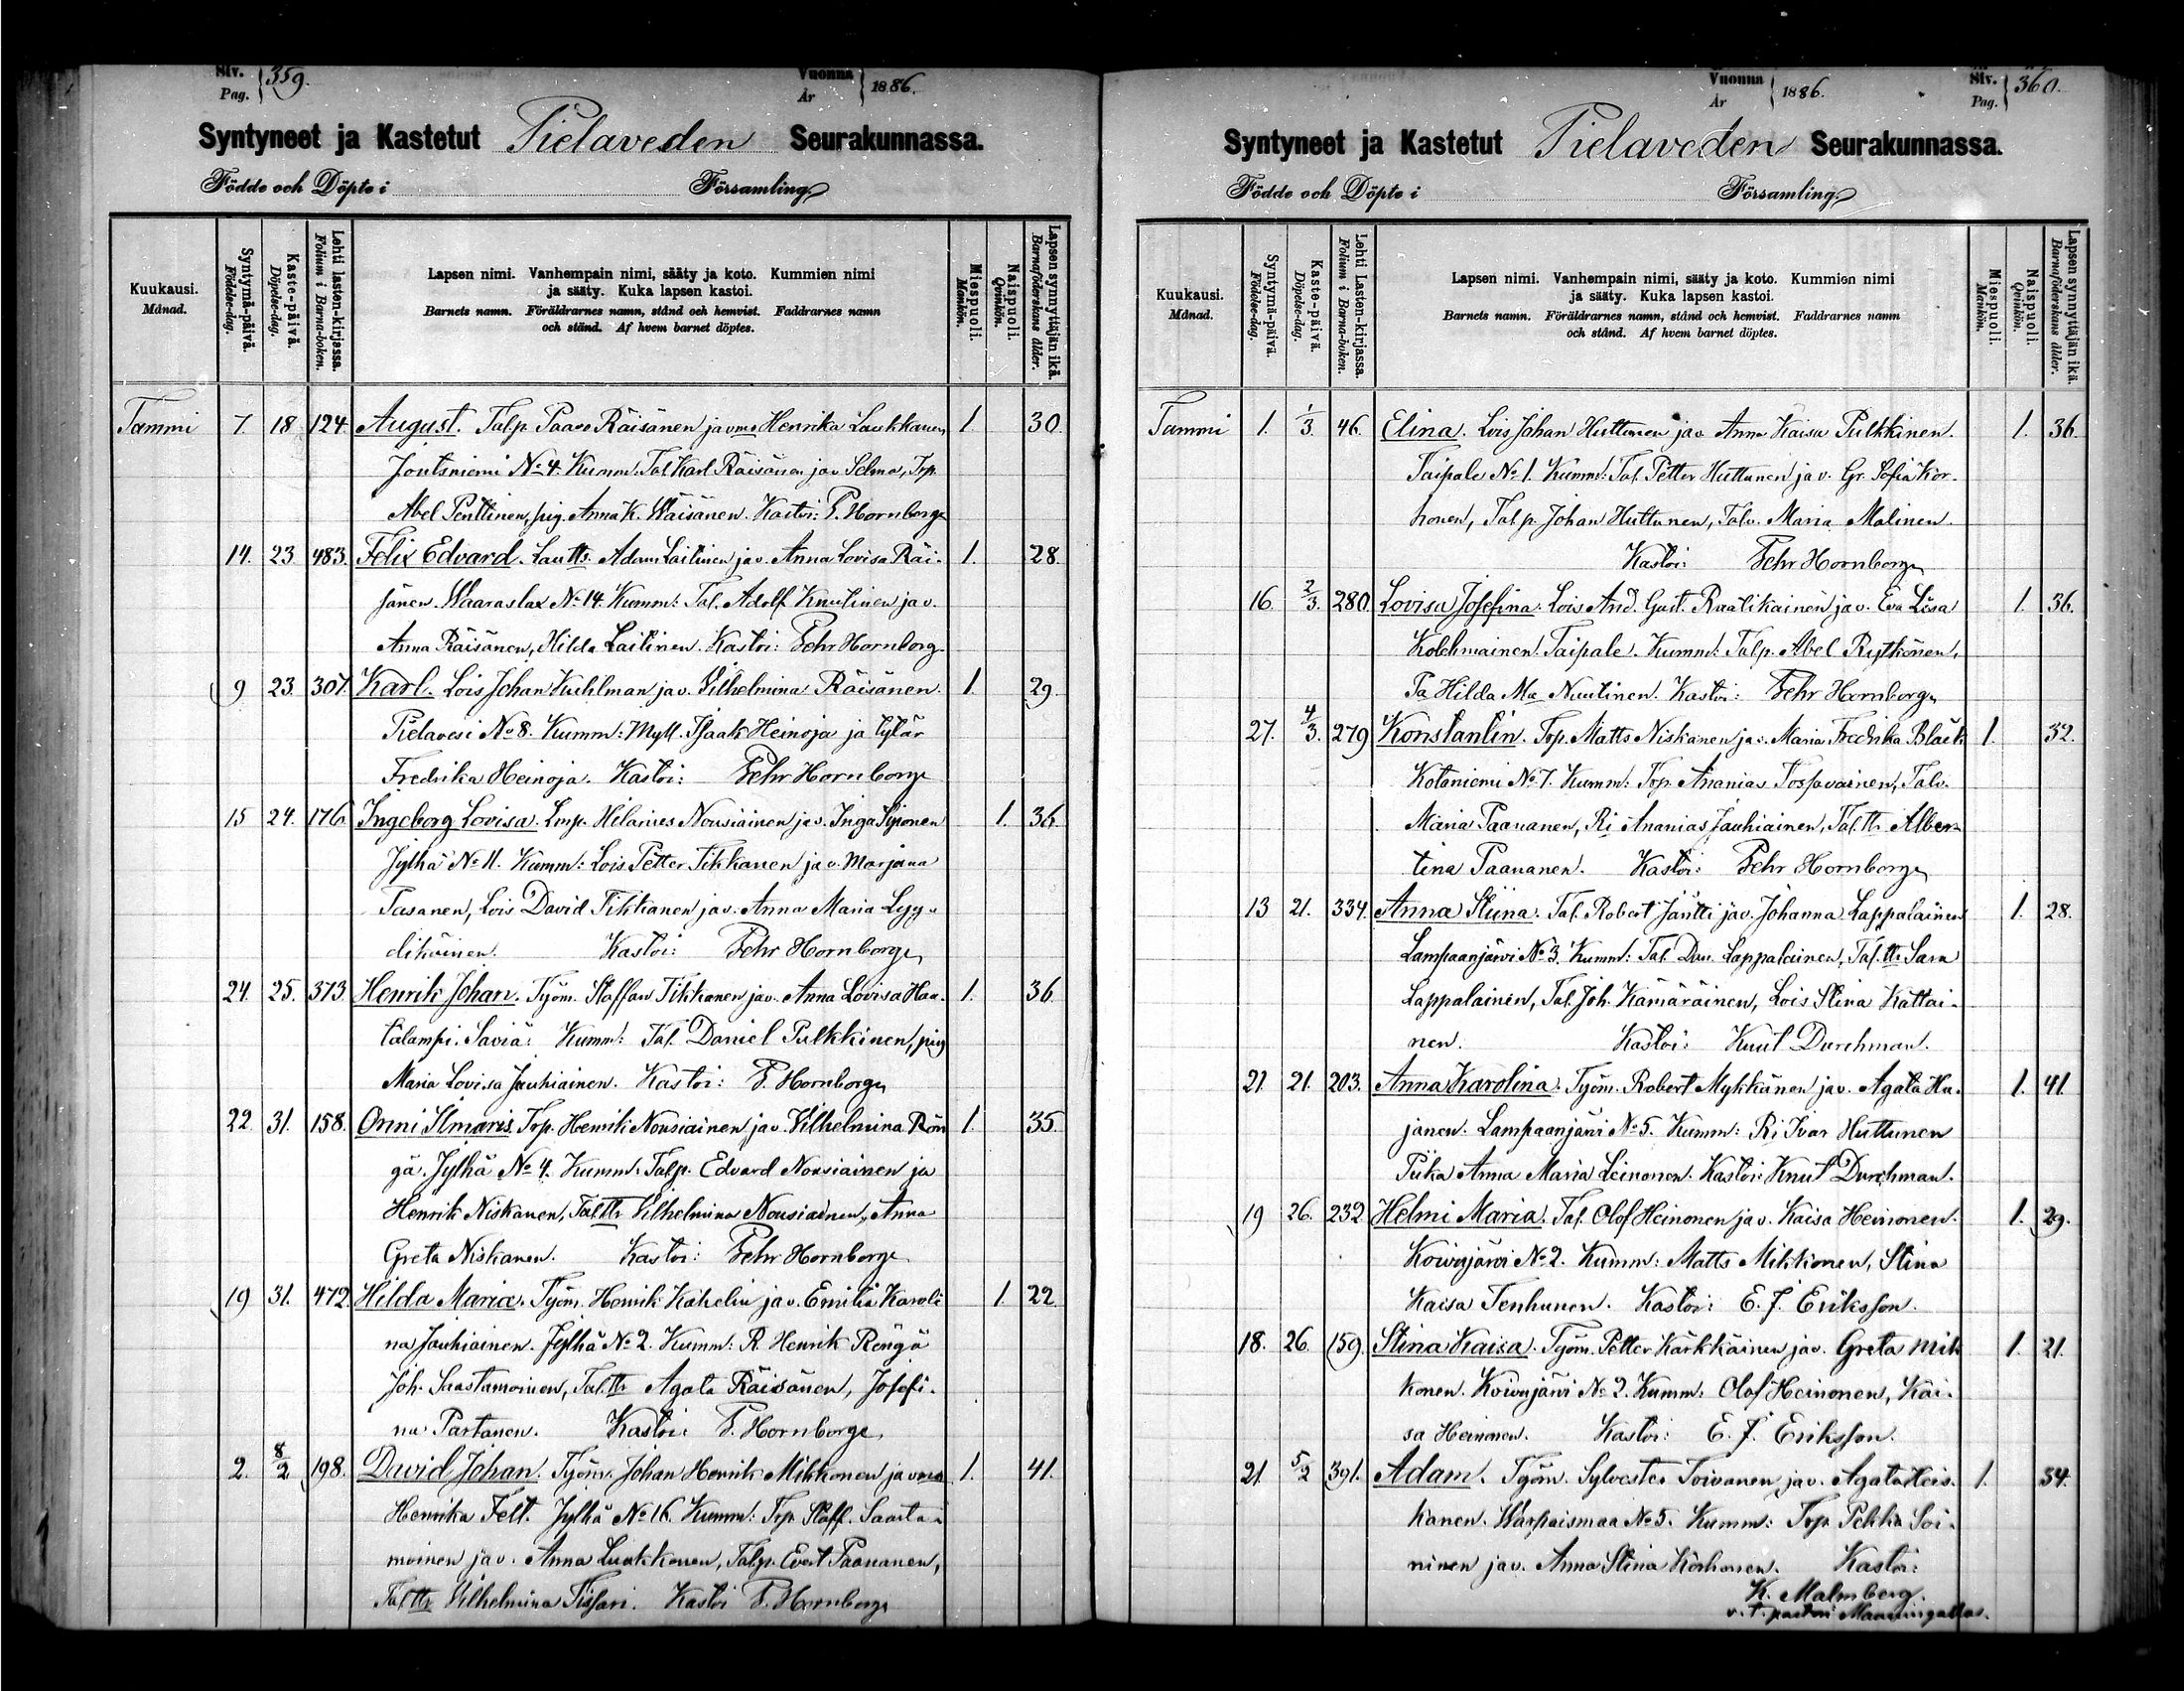 Siv. Pag. 359.
Vuonna År 1886.
Syntyneet ja Kastetut Pielaveden Seurakunnassa.
Födde och Döpte i Församling.
Kuukausi. Månad.
Syntymä-päivä. Födelse-dag.
Kaste-päivä. Döpelse-dag.
Lehti lasten-kirjassa. Folium i Barna-boken.
Lapsen nimi. Vanhempain nimi, sääty ja koto. Kummien nimi
ja sääty. Kuka lapsen kastoi.
Barnets namn. Föräldrarnes namn, stånd och hemvist. Faddrarnes namn
och stånd. Af hvem barnet döptes.
Miespuoli. Mankön.
Naispuoli. Qvinkön.
Lapsen synnyttäjän ikä. Barnaföderskans ålder.
Tammi 7. 18 124. August. Talp. Paavo Räisänen ja vmo Henrika Laukkanen 1. 30.
Joutsniemi No 4. Kumm: Tal. Karl Räisänen ja v. Selma, Trp.
Abel Penttinen, pig. Anna K. Wäisänen. Kastoi: P. Hornborg
14. 23. 483. Felix Edvard. Lautts. Adam Laitinen ja v. Anna Lovisa Räi- 1. 28.
sänen. Waaraslax No 14. Kumm: Tal. Adolf Knutinen ja v.
Anna Räisänen, Hilda Laitinen. Kastoi: Pehr Hornborg
9 23. 307. Karl. Lois Johan Kuhlman ja v. Vilhelmina Räisänen. 1. 29.
Pielavesi No 8. Kumm: Myll. Isaak Heinoja ja tytär
Fredrika Heinoja. Kastoi: Pehr Hornborg
15 24. 176. Ingeborg Lovisa. Lmp. Hilarius Nousiainen ja v. Inga Siponen 1. 36.
Jylhä No 11. Kumm: Lois Petter Tikkanen ja v. Marjana
Tusanen, Lois David Tikkanen ja v. Anna Maria Lyy-
dikäinen. Kastoi: Pehr Hornborg
24. 25. 373. Henrik Johan. Työm. Staffan Tikkanen ja v. Anna Lovisa Haa- 1. 36.
talampi. Saviä. Kumm: Tal. Daniel Pulkkinen, pig
Maria Lovisa Jauhiainen. Kastoi: P. Hornborg
22. 31. 158. Onni Ilmaris. Trp. Henrik Nousiainen ja v. Vilhelmina Rön 1. 35.
gä. Jylhä No 4. Kumm: Talp. Edvard Nousiainen ja
Henrik Niskanen, Tal.tr Vilhelmina Nousiainen, Anna
Greta Niskanen. Kastoi: Pehr Hornborg
19 31. 472. Hilda Maria. Työm. Henrik Kahelin ja v. Emilia Karoli 1. 22.
na Jauhiainen. Jylhä No 2. Kumm: R. Henrik Röngä
Joh. Saastamoinen, Tal.tr Agata Räisänen, Josefi-
na Partanen. Kastoi: P. Hornborg
2. 8/2 198. David Johan. Työm. Johan Henrik Mikkonen ja vmo 1. 41.
Henrika Felt. Jylhä No 16. Kumm: Trp. Staff. Saasta-
moinen ja v. Anna Luukkonen, Talp. Evert Paananen,
Tal.tr Vilhelmina Tissari. Kastoi P. Hornborg
Vuonna År 1886.
Siv. Pag. 360.
Syntyneet ja Kastetut Pielaveden Seurakunnassa.
Födde och Döpte i Församling.
Kuukausi. Månad.
Syntymä-päivä. Födelse-dag.
Kaste-päivä. Döpelse-dag.
Lehti Lasten-kirjassa. Folium i Barna-boken.
Lapsen nimi. Vanhempain nimi, sääty ja koto. Kummien nimi
ja sääty. Kuka lapsen kastoi.
Barnets namn. Föräldrarnes namn, stånd och hemvist. Faddrarnes namn
och stånd. Af hvem barnet döptes.
Miespuoli. Mankön.
Naispuoli. Qvinkön.
Lapsen synnyttäjän ikä. Barnaföderskans ålder.
Tammi 1. 1/3. 46. Elina. Lois Johan Huttunen ja v. Anna Kaisa Pulkkinen. 1. 36.
Taipale No 1. Kumm: Tal. Petter Huttunen ja v. Gr. Sofia Kor-
honen, Talp. Johan Huttunen, Talv. Maria Malinen.
Kastoi: Pehr Hornborg
16. 2/3. 280. Lovisa Josefina. Lois And. Gust. Raatikainen ja v. Eva Lisa 1. 36.
Kolehmainen. Taipale. Kumm: Talp. Abel Rytkönen,
Ta Hilda Ma Nuutinen. Kastoi: Pehr Hornborg
27. 4/3. 279 Konstantin. Trp. Matts Niskanen ja v. Maria Fredrika Bläck 1. 32.
Kotaniemi No 7. Kumm: Trp. Ananias Tossavainen, Talv.
Maria Paananen, Ri Ananias Jauhiainen, Tal.tr Alber-
tina Paananen. Kastoi: Pehr Hornborg
13 21. 334. Anna Stiina. Tal. Robert Jäntti ja v. Johanna Lappalainen 1. 28.
Lampaanjärvi No 3. Kumm: Tal. Dan. Lappalainen, Tal.tr Sara
Lappalainen, Tal. Joh. Kämäräinen, Lois Stina Kattai-
nen. Kastoi: Knut Durchman.
21. 21. 203. Anna Karolina. Työm. Robert Mykkänen ja v. Agata Ha- 1. 41.
janen. Lampaanjärvi No 5. Kumm: Ri Ivar Huttunen
Piika Anna Maria Leinonen. Kastoi: Knut Durchman.
19 26. 232. Helmi Maria. Tal. Olof Heinonen ja v. Kaisa Heinonen. 1. 29.
Koivujärvi No 2. Kumm: Matts Mikkonen, Stina
Kaisa Tenhunen. Kastoi: E. J. Eriksson.
18. 26. 159. Stina Kaisa. Työm. Petter Kärkkäinen ja v. Greta Mik 1. 21.
konen. Koivujärvi No 2. Kumm: Olof Heinonen, Kai-
sa Heinonen. Kastoi: E. J. Eriksson.
21 5/2 391. Adam. Työm. Sylvester Toivanen ja v. Agata Heis- 1. 34.
kanen. Warpaismaa No 5. Kumm: Trp. Pekka Soi-
ninen ja v. Anna Stina Korhonen. Kastoi:
K. Malmberg.
v. t. pastori Maaningalla.